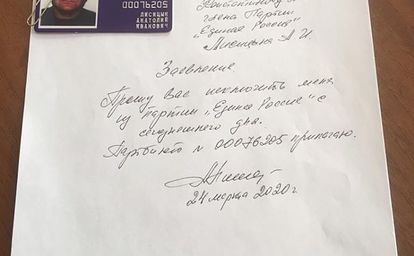 00076205
ЛИСИЦЫН
АНАТОЛИЙ
ИВАНОВИЧ
члена Партии
„Единая Россия"
Лисицына А. И.
Заявление
Прошу Вас исключить меня
из партии „Единая Россия" с
сегодняшнего дня.
Партбилет № 00076205 прилагаю.
24 марта 2020г.